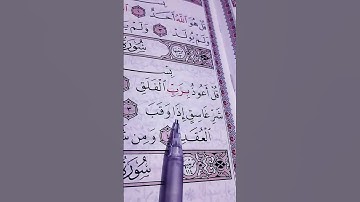 قُلْ هُوَ ٱللَّهُ أَحَدٌ ١
وَلَمْ يُولَدْ ٣ وَلَمْ
سُورَةُ
بِسْ
قُلْ أَعُوذُ بِرَبِّ ٱلْفَلَقِ
شَرِّ غَاسِقٍ إِذَا وَقَبَ ٣
ٱلْعُقَدِ ٤ وَمِن
سُورَةُ